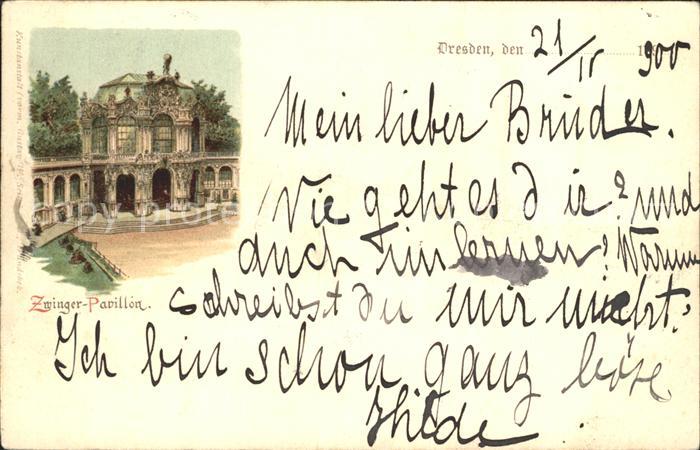 Dresden, den 21/II 1900
Mein lieber Bruder.
Wie geht es dir? und
auch im lernen? Warum
schreibst du mir nicht?
Ich bin schon ganz böse
Hilde
Zwinger-Pavillon.